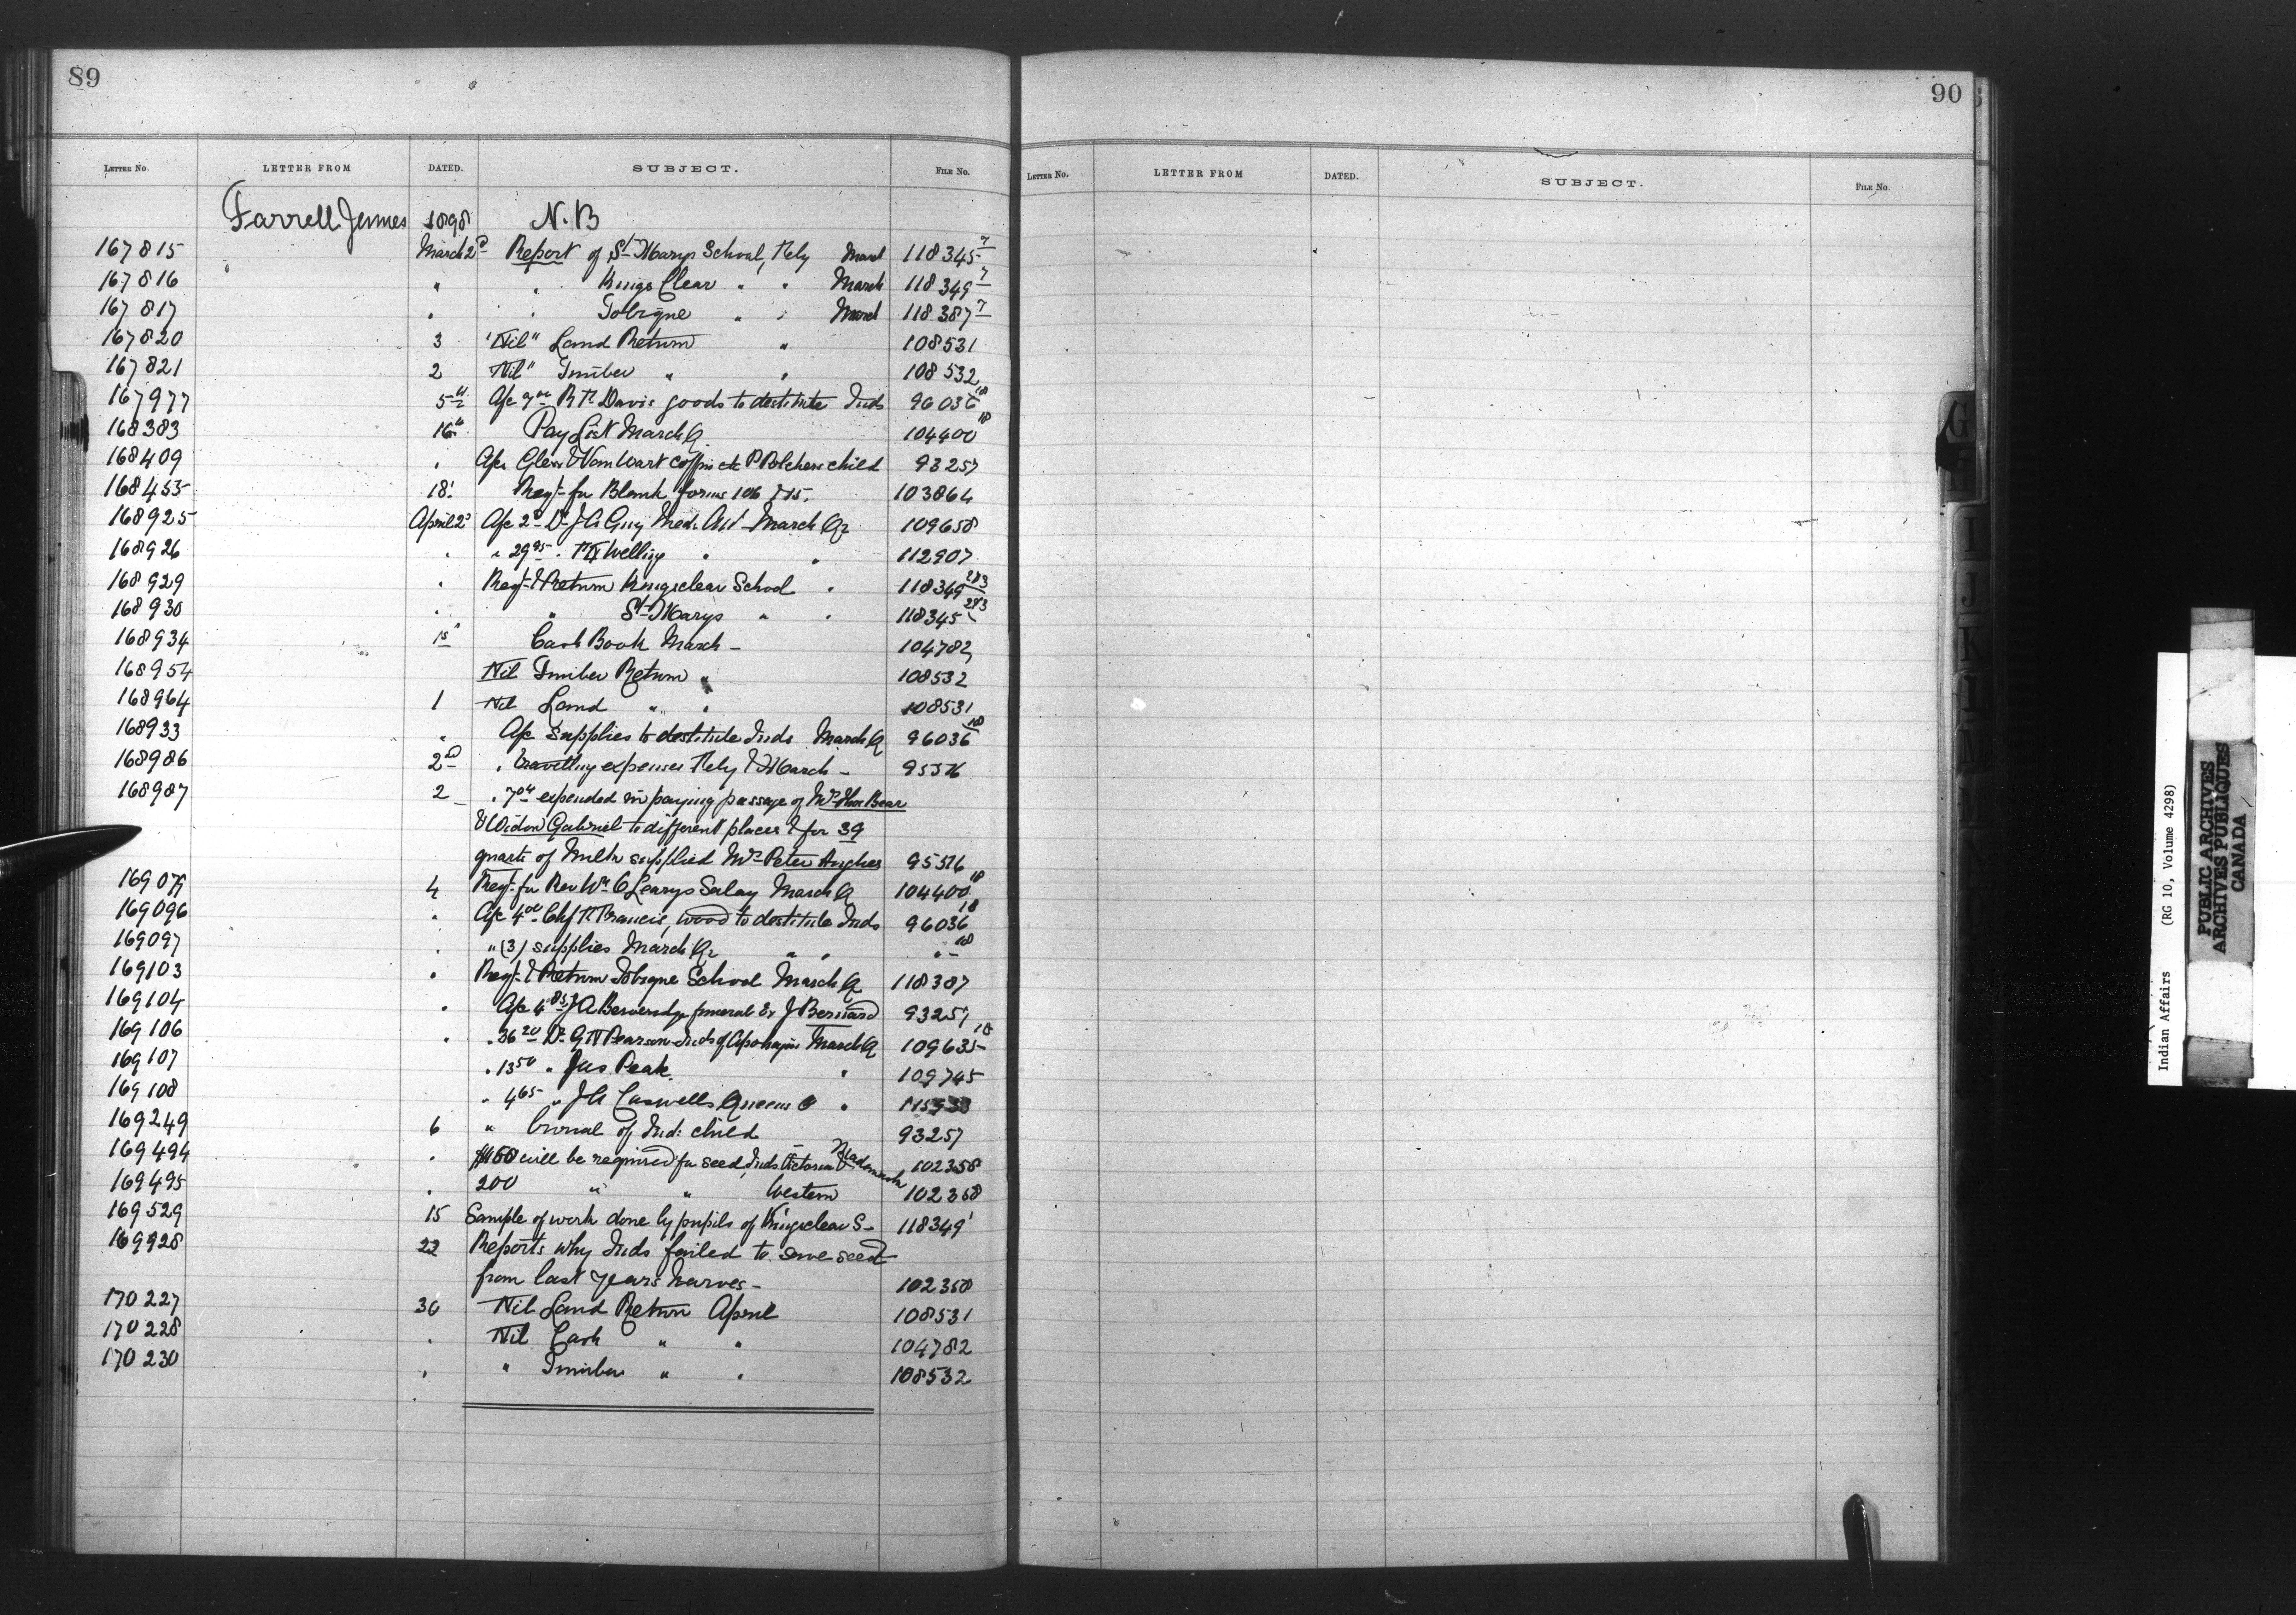 89
LETTER NO. LETTER FROM DATED. SUBJECT. FILE NO.
Farrell James 1898 N.B
167815 March 2d Report of St Marys School, Feby March 118345-7
167816 " " Kings Clear " " March 118349-7
167817 " " Tobique " " March 118387-7
167820 3 "Nil" Land Return " 108531
167821 2 Nil" Timber " " 108532
167977 5th A/c 7 R H Davis goods to destitute Inds 96036 18
168383 16th Pay List March Q 104400 18
168409 " A/cs coffin etc P Polchers child 93257
168455 18 Reqt for Blank forms 106 & 15. 103864
168925 April 2d A/c 2 Dr J A Guy Med. Att March Qr 109658
168926 " " 29 95 " Welling " " 112907
168929 " Reqt & Return Kingsclear School " 118349 283
168930 " " St Marys " " 118345 283
168934 1st Cash Book March - 104782
168954 Nil Timber Return " 108532
168964 1 Nil Land " " 108531
168933 " A/c Supplies to destitute Inds March Q 96036 18
168986 2nd " travelling expenses Feby & March - 95576
168987 2 " 7 expended in paying passage of Mrs Thos Bear
& Widow Gabriel to different places & for 39
quarts of milk supplied Mrs Peter 95576
169079 4 Reqt for Rev Wm O'Learys Salary March Q 104400 18
169096 " A/c 4 00 Chf Francis, wood to destitute Inds 96036 18
169097 " " (3) supplies March Qr " " " - 18
169103 " Reqt & Return Tobique School March Q 118387
169104 " A/c 4 85 J A Beveredge funeral Ex J Bernard 93257
169106 " " 36 20 Dr G N Pearson Inds of Apohaqui March Q 109635 18
169107 " 13 50 " Jas Peake " 109745
169108 " 4 65 " J A Caswells Queens Co "
169249 6 " burial of Ind: child 93257
169494 " $150 will be required for seed, Inds Victoria & Madawaska 102358
169495 " 200 " " Western 102358
169529 15 Sample of work done by pupils of Kingsclear S- 118349 1
169928 22 Reports why Inds failed to save seed
from last years harves- 102358
170227 30 Nil Land Return April 108531
170228 " Nil Cash " " 104782
170230 " " Timber " " 108532
90
LETTER NO. LETTER FROM DATED. SUBJECT. FILE NO
G
I
J
K
Indian Affairs (RG 10, Volume 4298)
PUBLIC ARCHIVES
ARCHIVES PUBLIQUES
CANADA